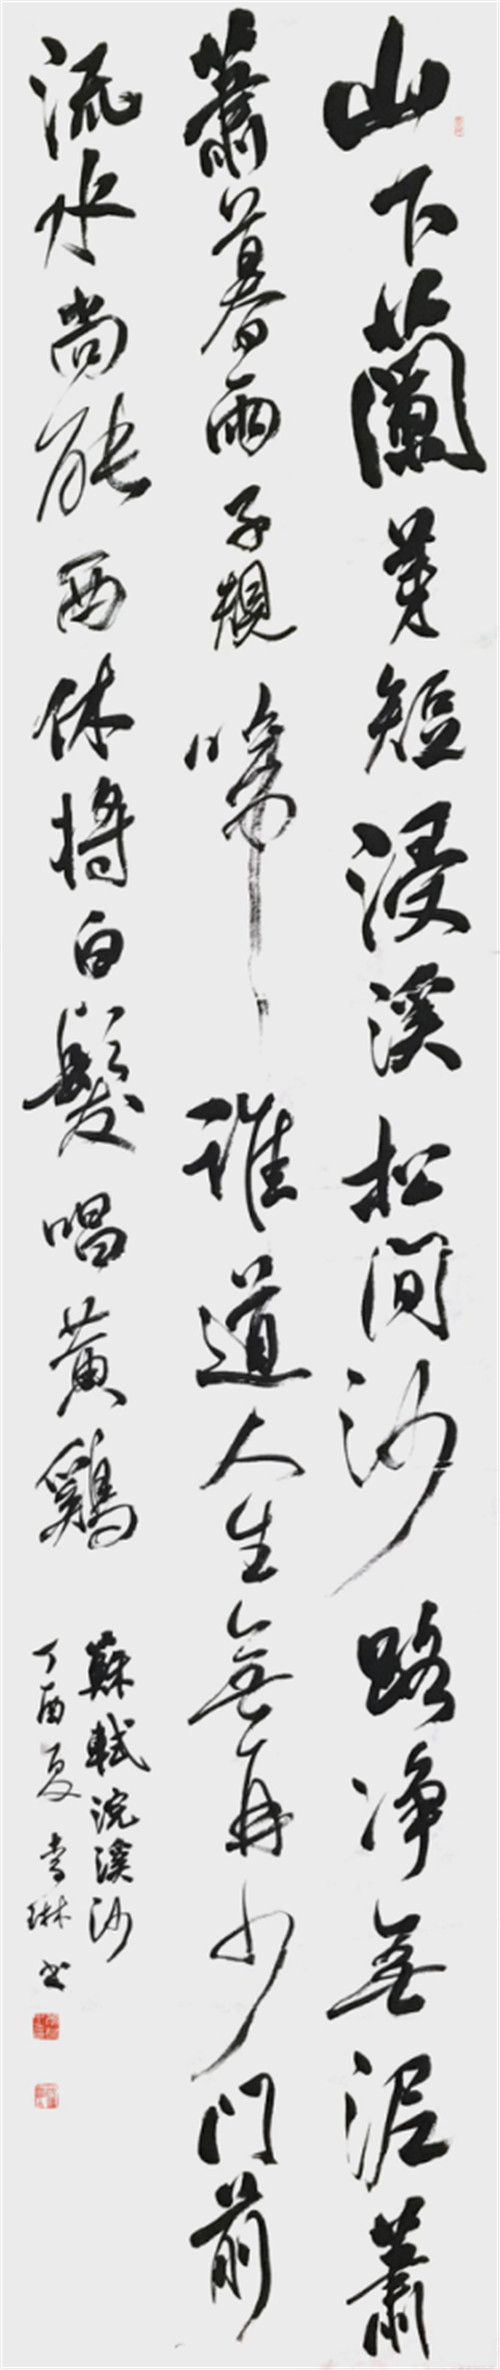 山下蘭芽短浸溪松間沙路净無泥蕭
蕭暮雨子規啼誰道人生無再少門前
流水尚能西休將白髮唱黄鷄
蘇軾浣溪沙
丁酉夏琳书